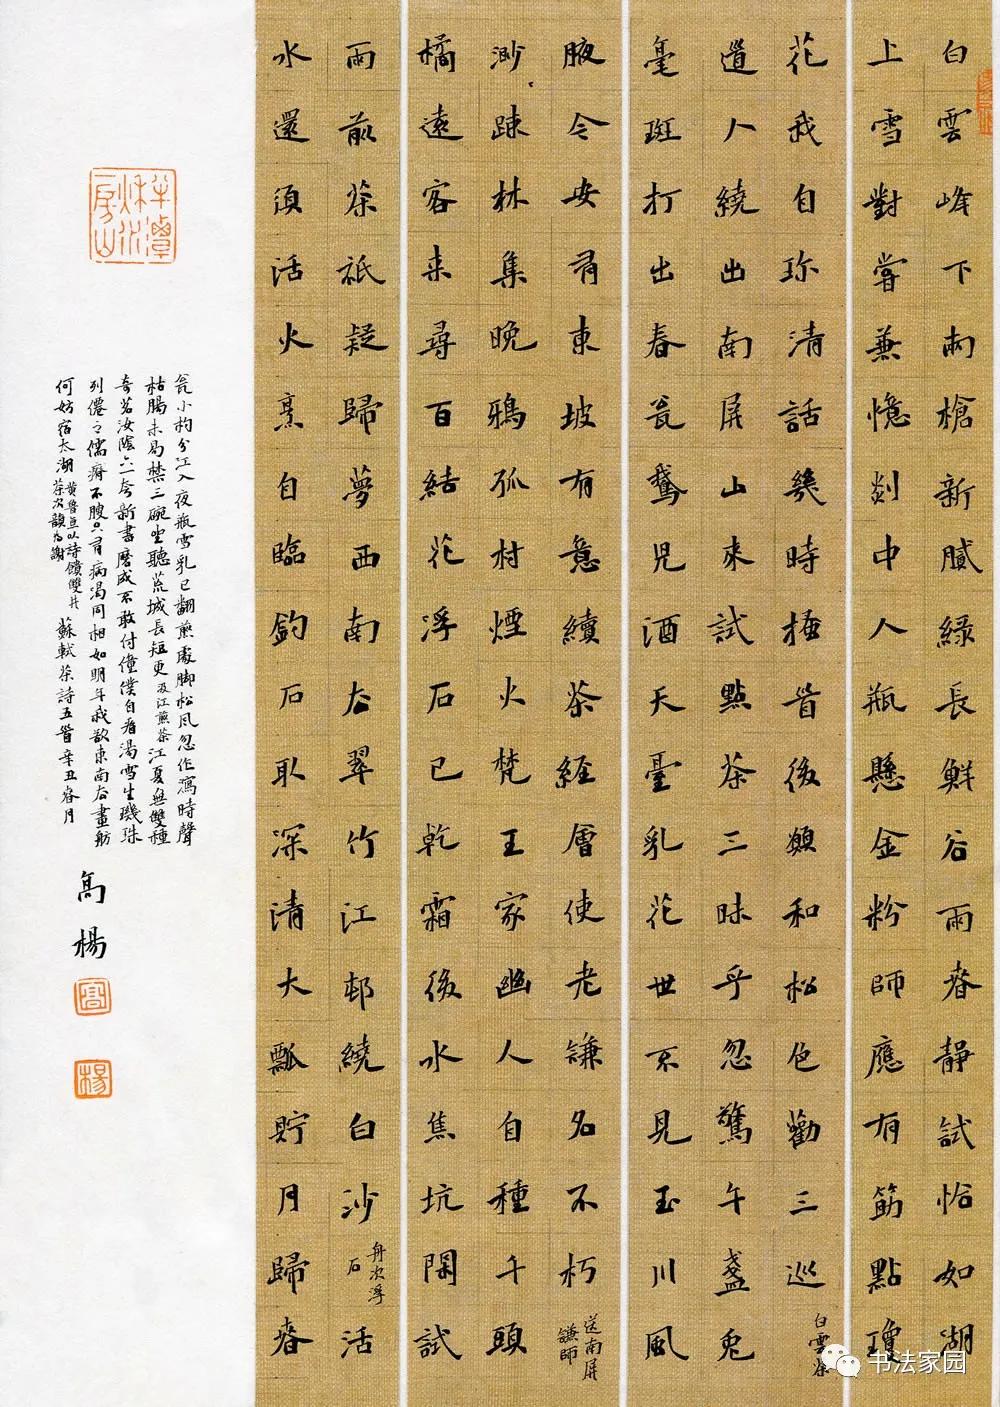 白雲峰下兩槍新膩綠長鮮谷雨春靜試恰如湖
上雪對嘗兼憶剡中人瓶懸金粉師應有筯點瓊
花我自珎清話幾時捶首後願和松色勸三巡 白雲茶
道人繞出南屏山來試點茶三昧乎忽驚午盞兔
毫斑打出春瓮鵞兒酒天臺乳花世不見玉川風
腋今安有東坡有意續茶經會使老謙名不朽 送南屏謙師
渺疎林集晚鴉孤村煙火梵王家幽人自種千頭
橘遠客来尋百結花浮石已乾霜後水焦坑閑試
雨前茶祇疑歸夢西南去翠竹江邨繞白沙 舟次浮石 活
水還須活火烹自臨釣石取深清大瓢貯月歸春
瓮小杓分江入夜瓶雪乳已翻煎處脚松風忽作瀉時聲
枯腸未易禁三碗坐聽荒城長短更 汲江煎茶 江夏無雙種
奇茗汝陰六一夸新書磨成不敢付僮僕自看湯雪生璣珠
列僊之儒瘠不腴只有病渴同相如明年我欲東南去畫舫
何妨宿太湖 黃魯直以詩饋雙井茶次韻為謝 蘇軾茶詩五首辛丑春月
高楊
高
楊
半潭秋水一房山
书法家园